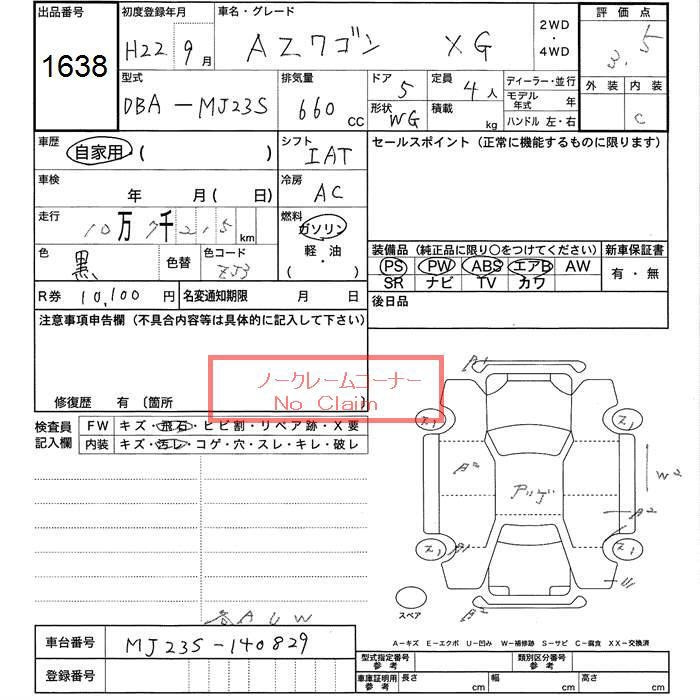 出品番号
1638
初度登録年月
H22 9月
車名・グレード
AZワゴン XG
2WD・4WD
評価点
3.5
型式
DBA-MJ23S
排気量
660 cc
ドア 5
形状 WG
定員 4人
積載 kg
ディーラー・並行
モデル年式 年
ハンドル 左・右
外装 内装
C
車歴
自家用・( )
シフト
IAT
セールスポイント(正常に機能するものに限ります)
車検
年 月( 日)
冷房
AC
走行
10万7千215km
燃料
ガソリン・軽・油
( )
色
黒
色替
色コード
ZJ3
装備品(純正品に限り○をつけてください)
新車保証書
PS PW ABS エアB AW
SR ナビ TV カワ
有・無
R券 10,100円
名変通知期限 月 日
後日品
注意事項申告欄(不具合内容等は具体的に記入して下さい)
ノークレームコーナー
No Claim
修復歴 有 〔箇所 〕
検査員記入欄
FW キズ・飛石・ヒビ割・リペア跡・X要
内装 キズ・汚レ・コゲ・穴・スレ・キレ・破レ
A1
ス1
ス1
A2
アツゲ
W2
A2
ス1
A1
ス1
A2
スペア
各AUW
A-キズ E-エクボ U-凹み W-補修跡 S-サビ C-腐食 XX-交換済
車台番号
MJ23S-140829
登録番号
型式指定番号 参考
類別区分番号 参考
車庫証明用 参考
長さ cm
幅 cm
高さ cm